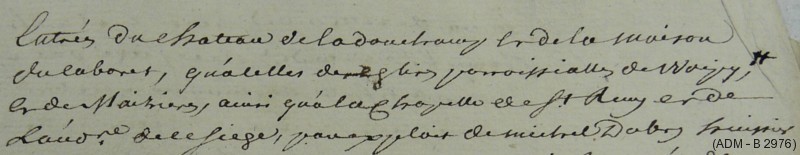 Entrées du chateau de ladonchamp et de la maison
du laboret, qu'a celles des eglises parroissialles de Woippy, #
et de Maizieres, ainsi qu'a la Chapelle de St Remy et de
L'audre de ce siege, par exploit de michel Dabry huissier
(ADM - B 2976)